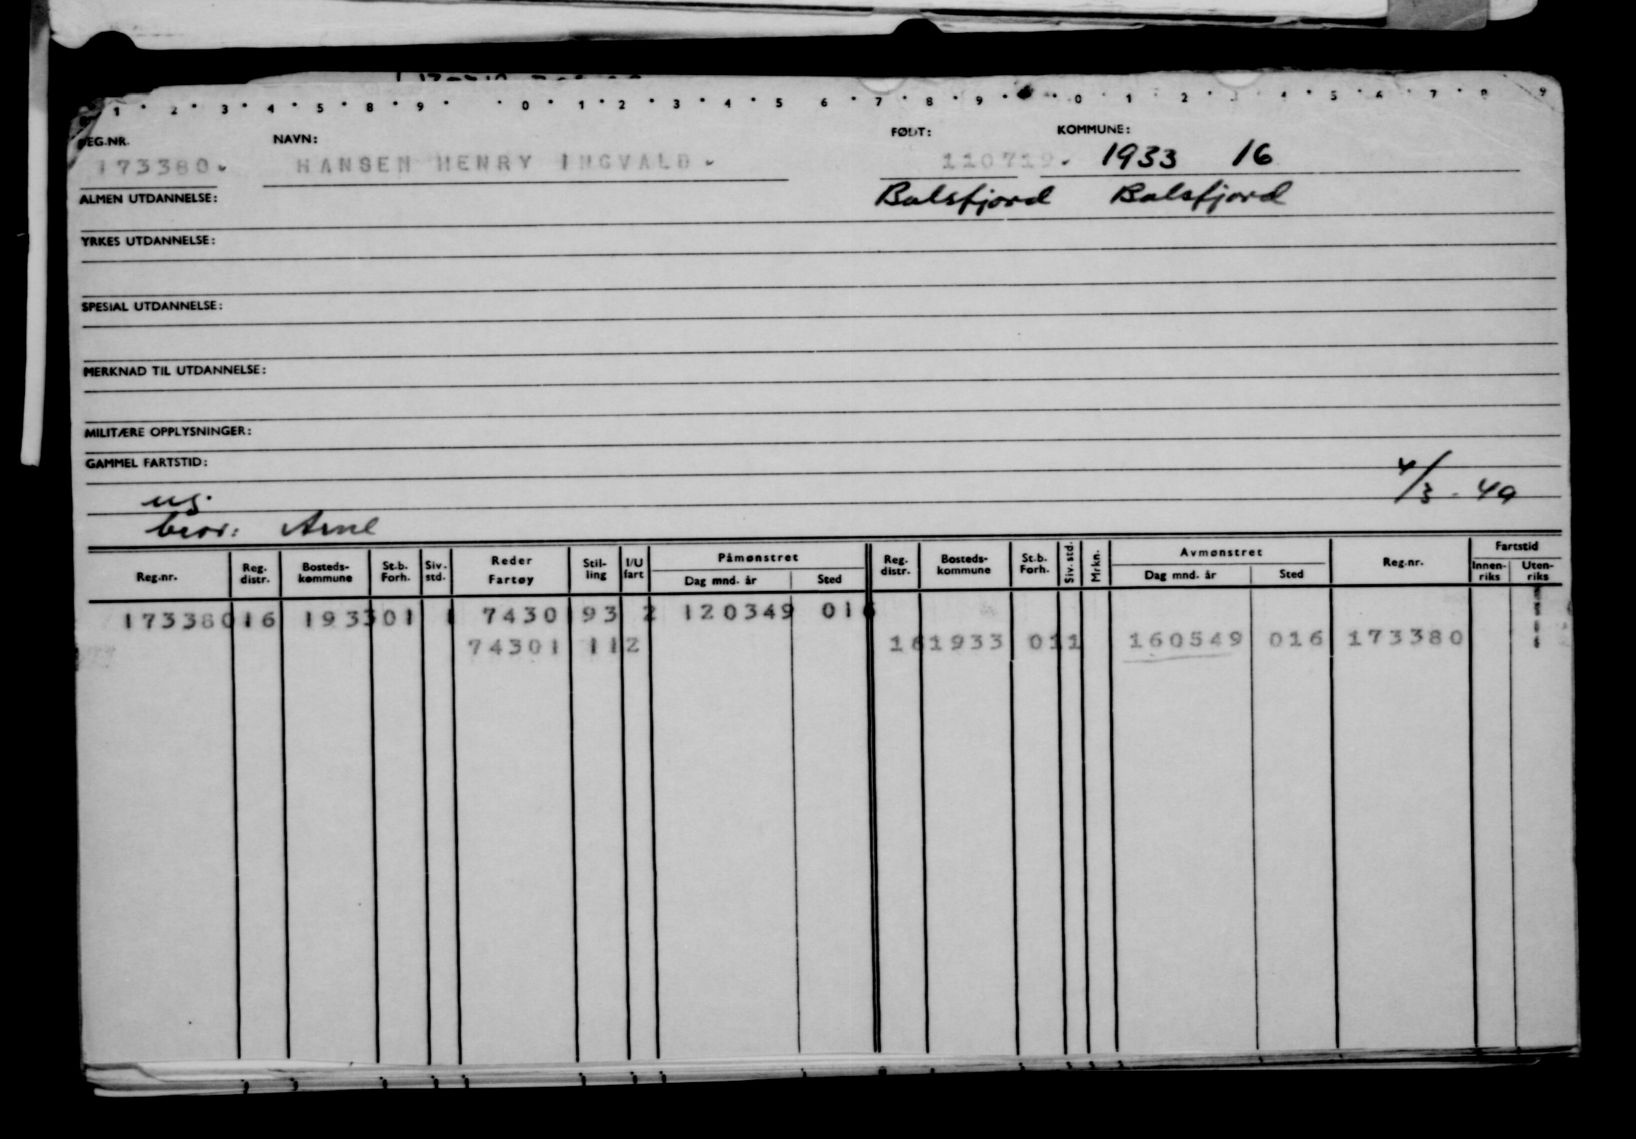 1 2 3 4 5 8 9 0 1 2 3 4 5 6 7 8 9 0 1 2 3 4 5 6 7 8 9
REG.NR. NAVN: FØDT: KOMMUNE:
173380 HANSEN HENRY INGVALD 110719 1933 16
ALMEN UTDANNELSE: Balsfjord Balsfjord
YRKES UTDANNELSE:
SPESIAL UTDANNELSE:
MERKNAD TIL UTDANNELSE:
MILITÆRE OPPLYSNINGER:
GAMMEL FARTSTID:
ug. 4/3-49
bror: Arne
Reg.nr. Reg. distr. Bosteds-kommune St.b. Forh. Siv. std. Reder Fartøy Stil-ling I/U fart Påmønstret Dag mnd. år Sted Reg. distr. Bosteds-kommune St.b. Forh. Siv. std. Mrkn. Avmønstret Dag mnd. år Sted Reg.nr. Fartstid Innen-riks Uten-riks
173380 16 1933 01 1 7430 193 2 120349 016
74301 112 16 1933 01 1 160549 016 173380